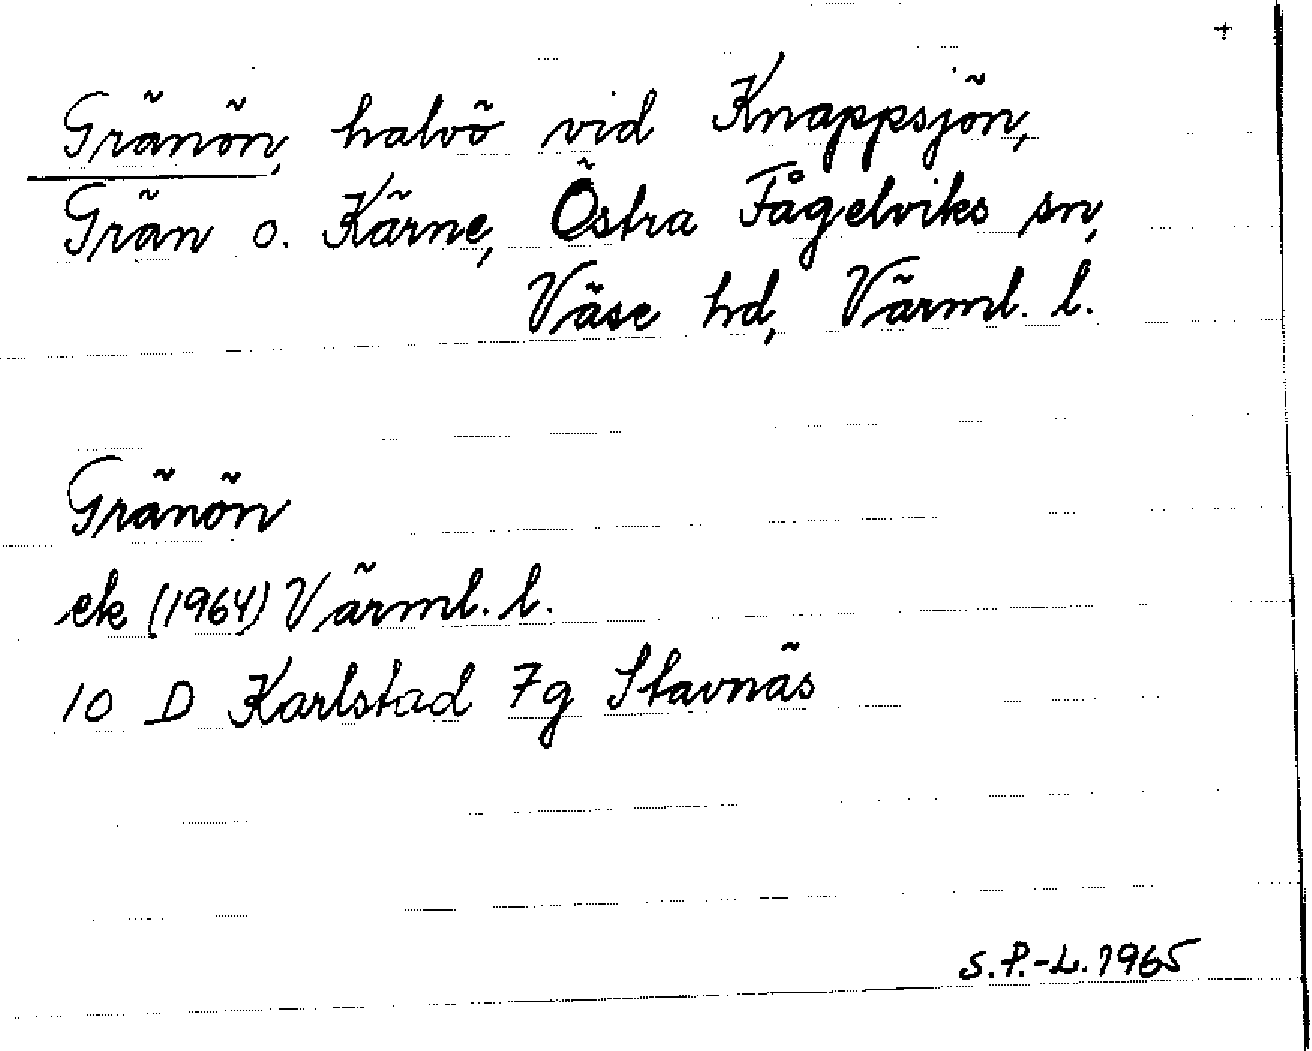 +
Gränön, halvö vid Knappsjön,
Grän o. Kärne, Östra Fågelviks sn,
Väse hd, Värml. l.
Gränön
ek (1964) Värml. l.
10 D Karlstad 7g Stavnäs
S.P.-L. 1965